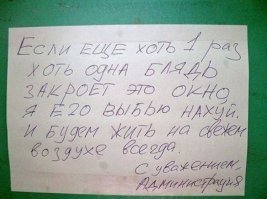 Если еще хоть 1 раз
хоть одна блядь
закроет это окно,
я его выбью нахуй.
И будем жить на свежем
воздухе всегда.
С уважением.
Администрация